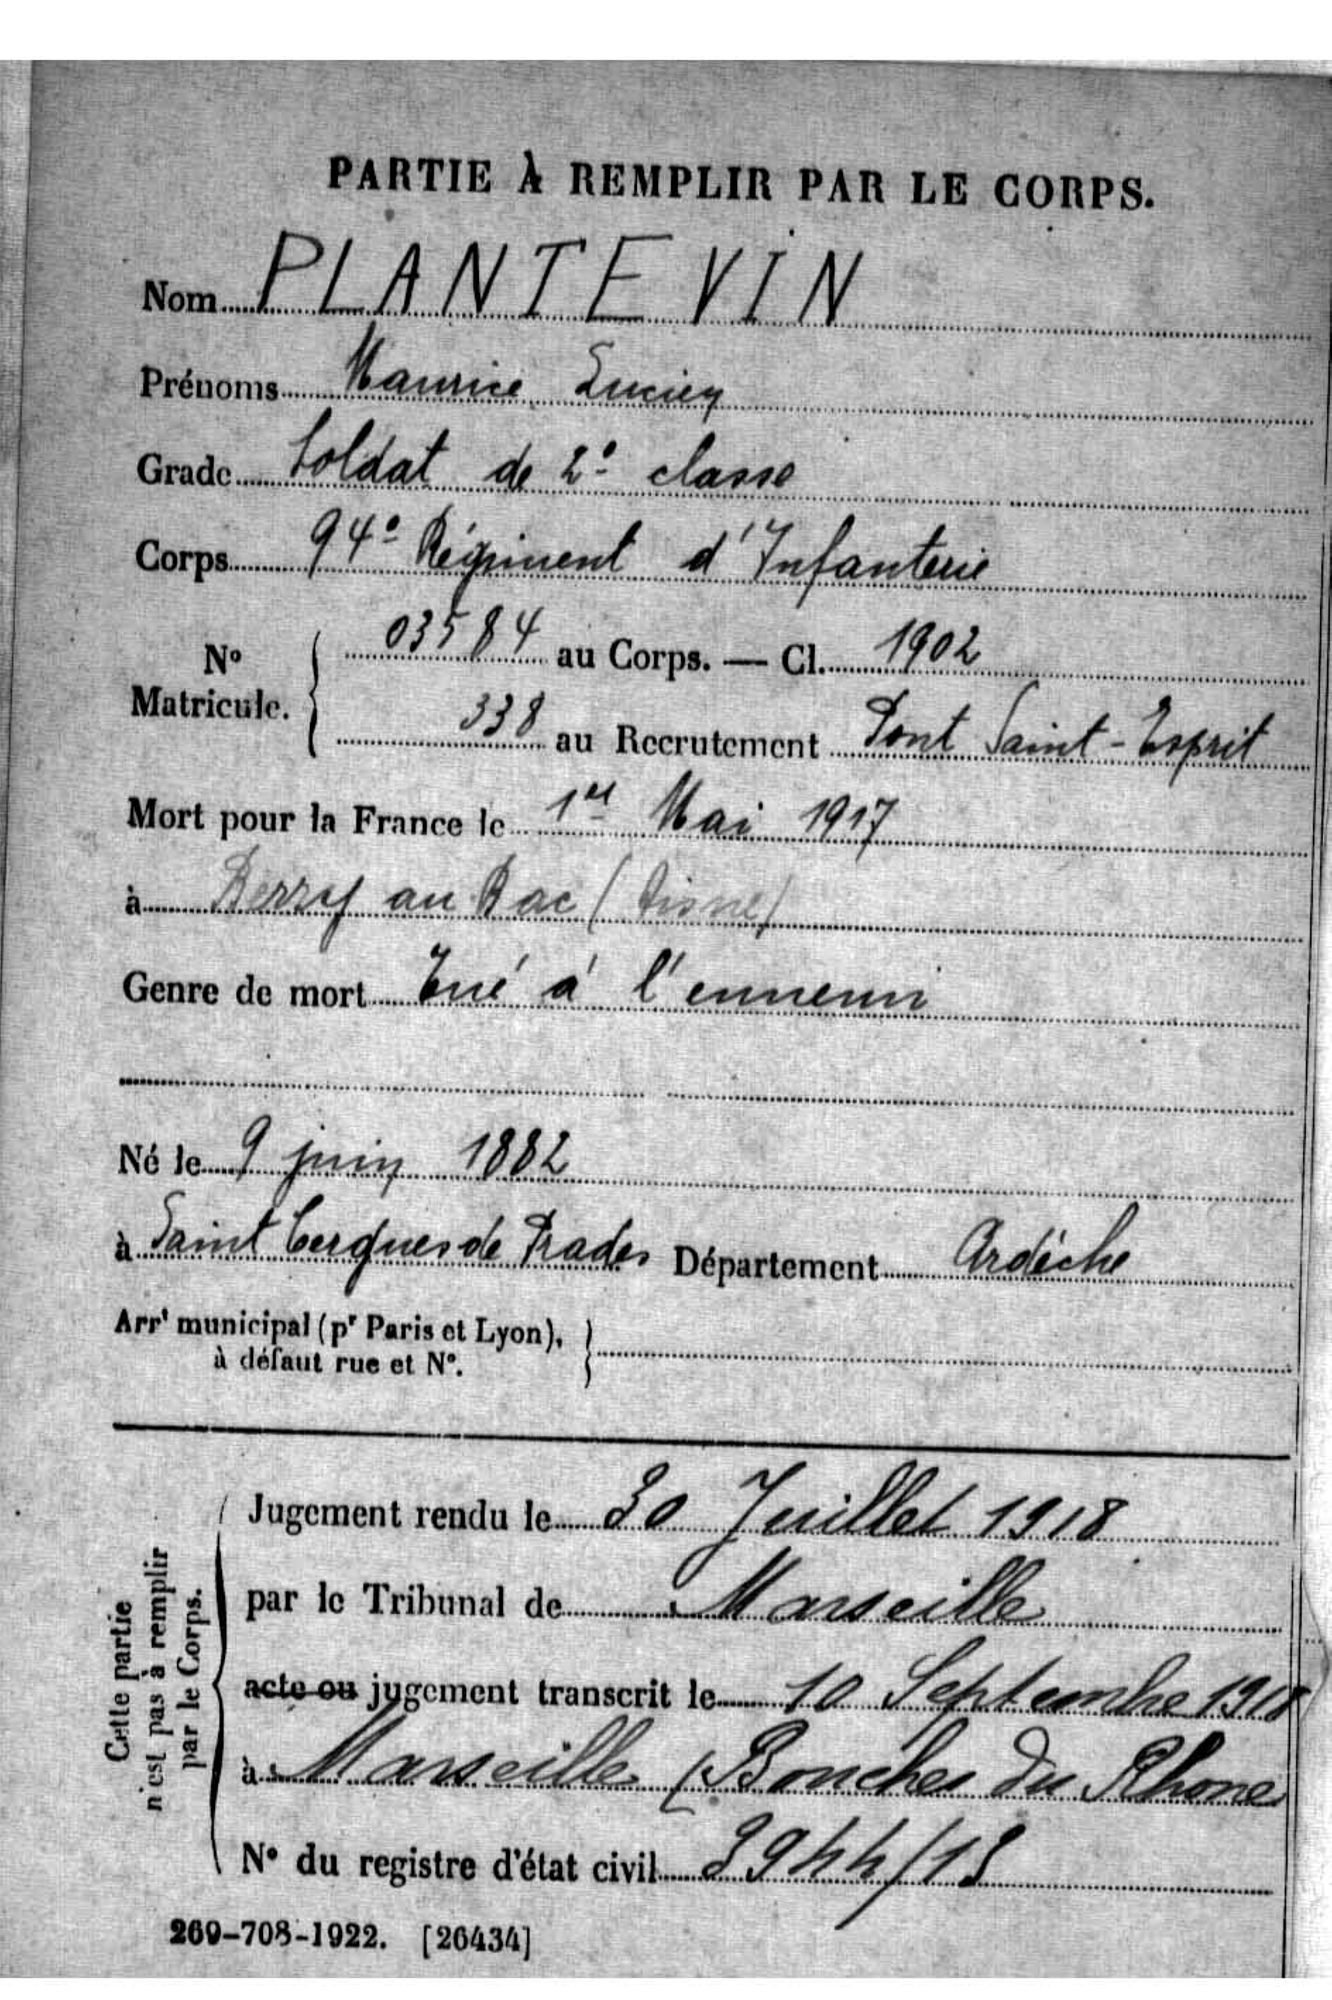 PARTIE À REMPLIR PAR LE CORPS.
Nom PLANTEVIN
Prénoms Maurice Lucien
Grade Soldat de 2e classe
Corps 94e Régiment d'Infanterie
N° Matricule. 03584 au Corps. — Cl. 1902
338 au Recrutement Pont Saint-Esprit
Mort pour la France le 1er Mai 1917
à Berry au Bac (Aisne)
Genre de mort Tué à l'ennemi
Né le 9 juin 1882
à Saint Cergues de Prades Département Ardèche
Arrt municipal (pr Paris et Lyon),
à défaut rue et N°.
Cette partie
n'est pas à remplir
par le Corps.
Jugement rendu le 30 Juillet 1918
par le Tribunal de Marseille
acte ou jugement transcrit le 10 Septembre 1918
à Marseille (Bouches du Rhone
N° du registre d'état civil 3944/18
269-708-1922. [26434]